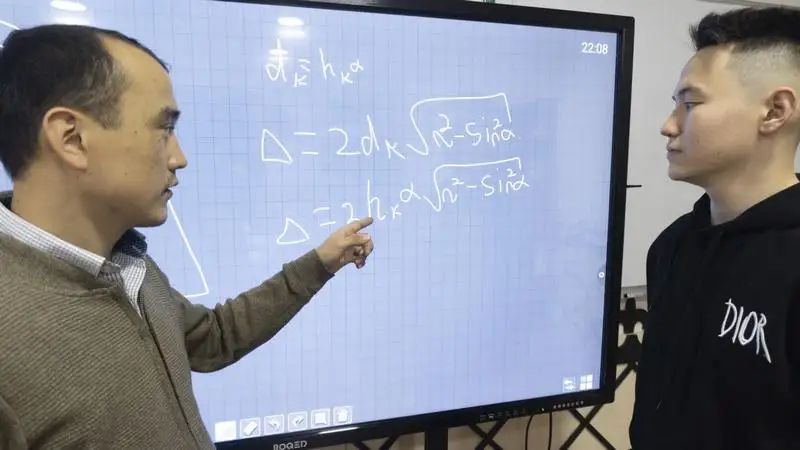 22:08
d_k = h_k α
Δ = 2d_k √(n² - sin²α)
Δ = 2h_k α √(n² - sin²α)
DIOR
ROGED